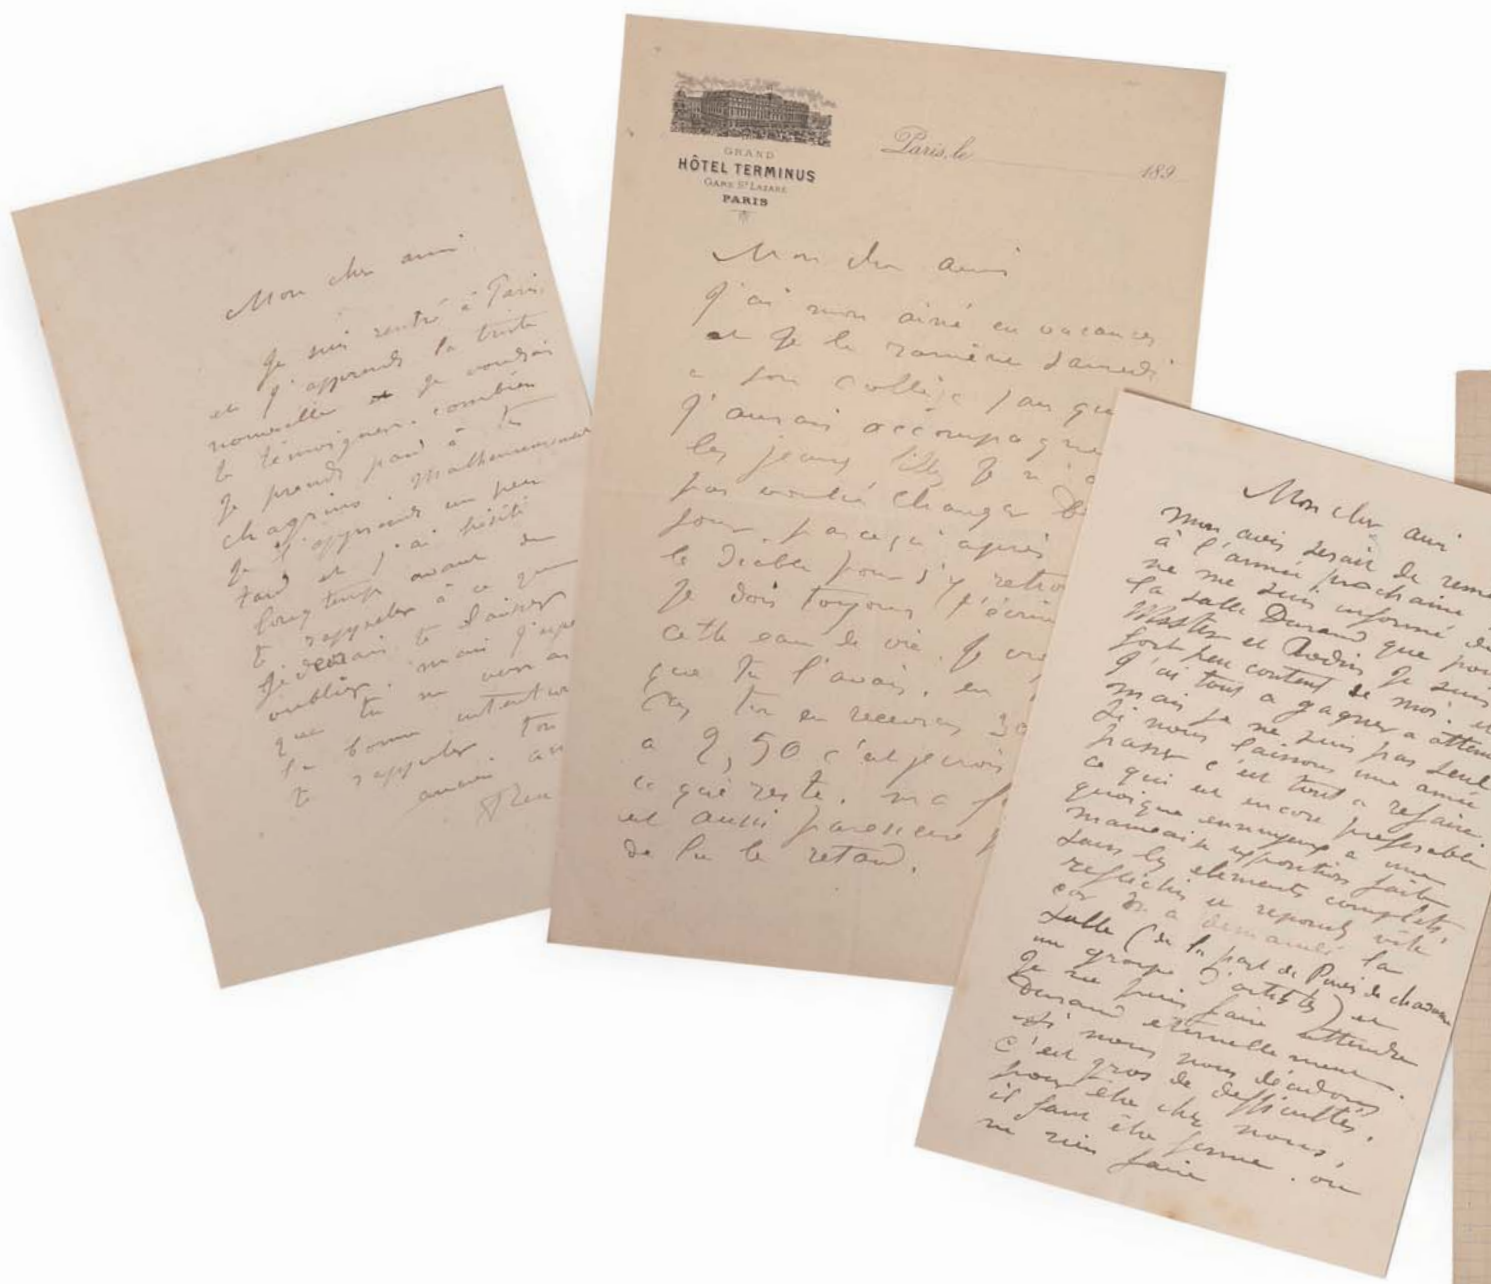 Mon cher ami
Je suis rentré à Paris.
et j'apprends la triste
nouvelle et je voudrais
te témoigner combien
je prends part à tes
chagrins. Malheureusement
je l'apprends un peu
tard et j'ai hésité
longtemps avant de
te rappeler à ce que
je devrais te laisser
oublier. mais j'espe
que tu ne verras
la bonne intention
te rappeler ton
ancien am
GRAND
HÔTEL TERMINUS
GARE ST LAZARE
PARIS
Paris, le 189
Mon cher ami
J'ai mon ainé en vacances
et je le ramène samedi
a son collège sans qu
j'aurais accompagné
les jeunes filles je n'
pas voulu changer
jour, parcequ'après
le diable pour s'y retro
Je dois toujours t'écrire
cette eau de vie. Je
que tu l'avais. en
tu en recevras 30
a 2,50 c'est je crois
ce qui reste. ma f
est aussi paresseuse
de là le retard.
Mon cher ami
mon avis serait de reme
à l'année prochaine
ne me suis informé de
la salle Durand que pou
et Rodin je suis
fort peu content de moi. et
j'ai tout a gagner a atten
mais je ne suis pas seul
Si nous laissons une année
passer c'est tout a refaire
ce qui est encore preferable
quoique ennuyeux a une
mauvaise exposition faite
sans les elements complets,
reflechis et reponds vite
car on a demandé la
salle (de la part de Puvis de chavann
un groupe d'artistes) et
Je ne puis faire attendre
Durand eternellement.
Si nous nous décidons
c'est gros de difficultés.
pour être chez nous,
il faut être ferme. ou
ne rien faire